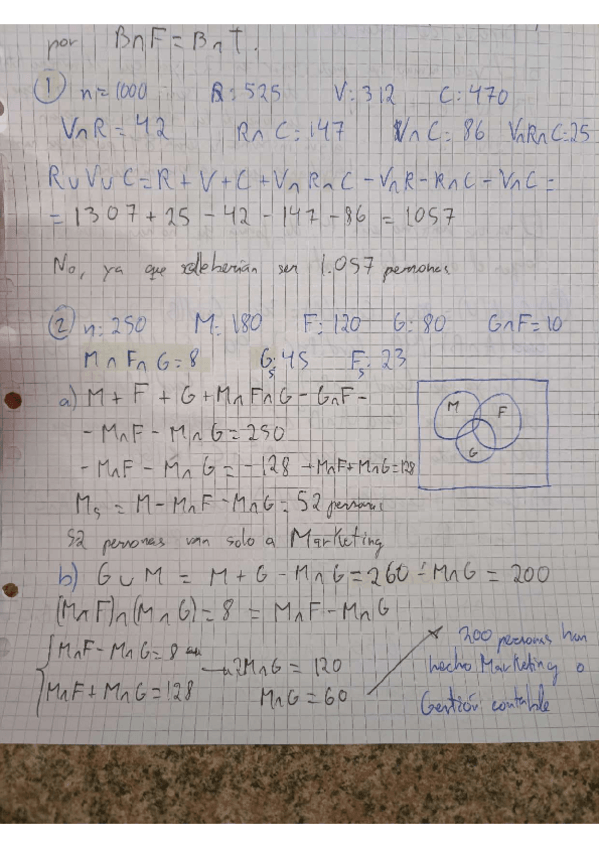 por B∩F = B∩T.
① n=1000 R: 525 V: 312 C: 470
V∩R = 42 R∩C: 147 V∩C: 86 V∩R∩C: 25
R∪V∪C = R + V + C + V∩R∩C - V∩R - R∩C - V∩C =
= 1307 + 25 - 42 - 147 - 86 = 1057
No, ya que deberían ser 1.057 personas
② n: 250 M: 180 F: 120 G: 80 G∩F = 10
M∩F∩G = 8 Gs: 45 Fs: 23
a) M + F + G + M∩F∩G - G∩F -
- M∩F - M∩G = 250
- M∩F - M∩G = -128 → M∩F + M∩G = 128
Ms = M - M∩F - M∩G = 52 personas
52 personas van solo a Marketing
M F G
b) G∪M = M + G - M∩G = 260 - M∩G = 200
(M∩F)∩(M∩G) = 8 = M∩F - M∩G
M∩F - M∩G = 8
→ 2M∩G = 120
M∩F + M∩G = 128 M∩G = 60
200 personas han
hecho Marketing o
Gestión contable